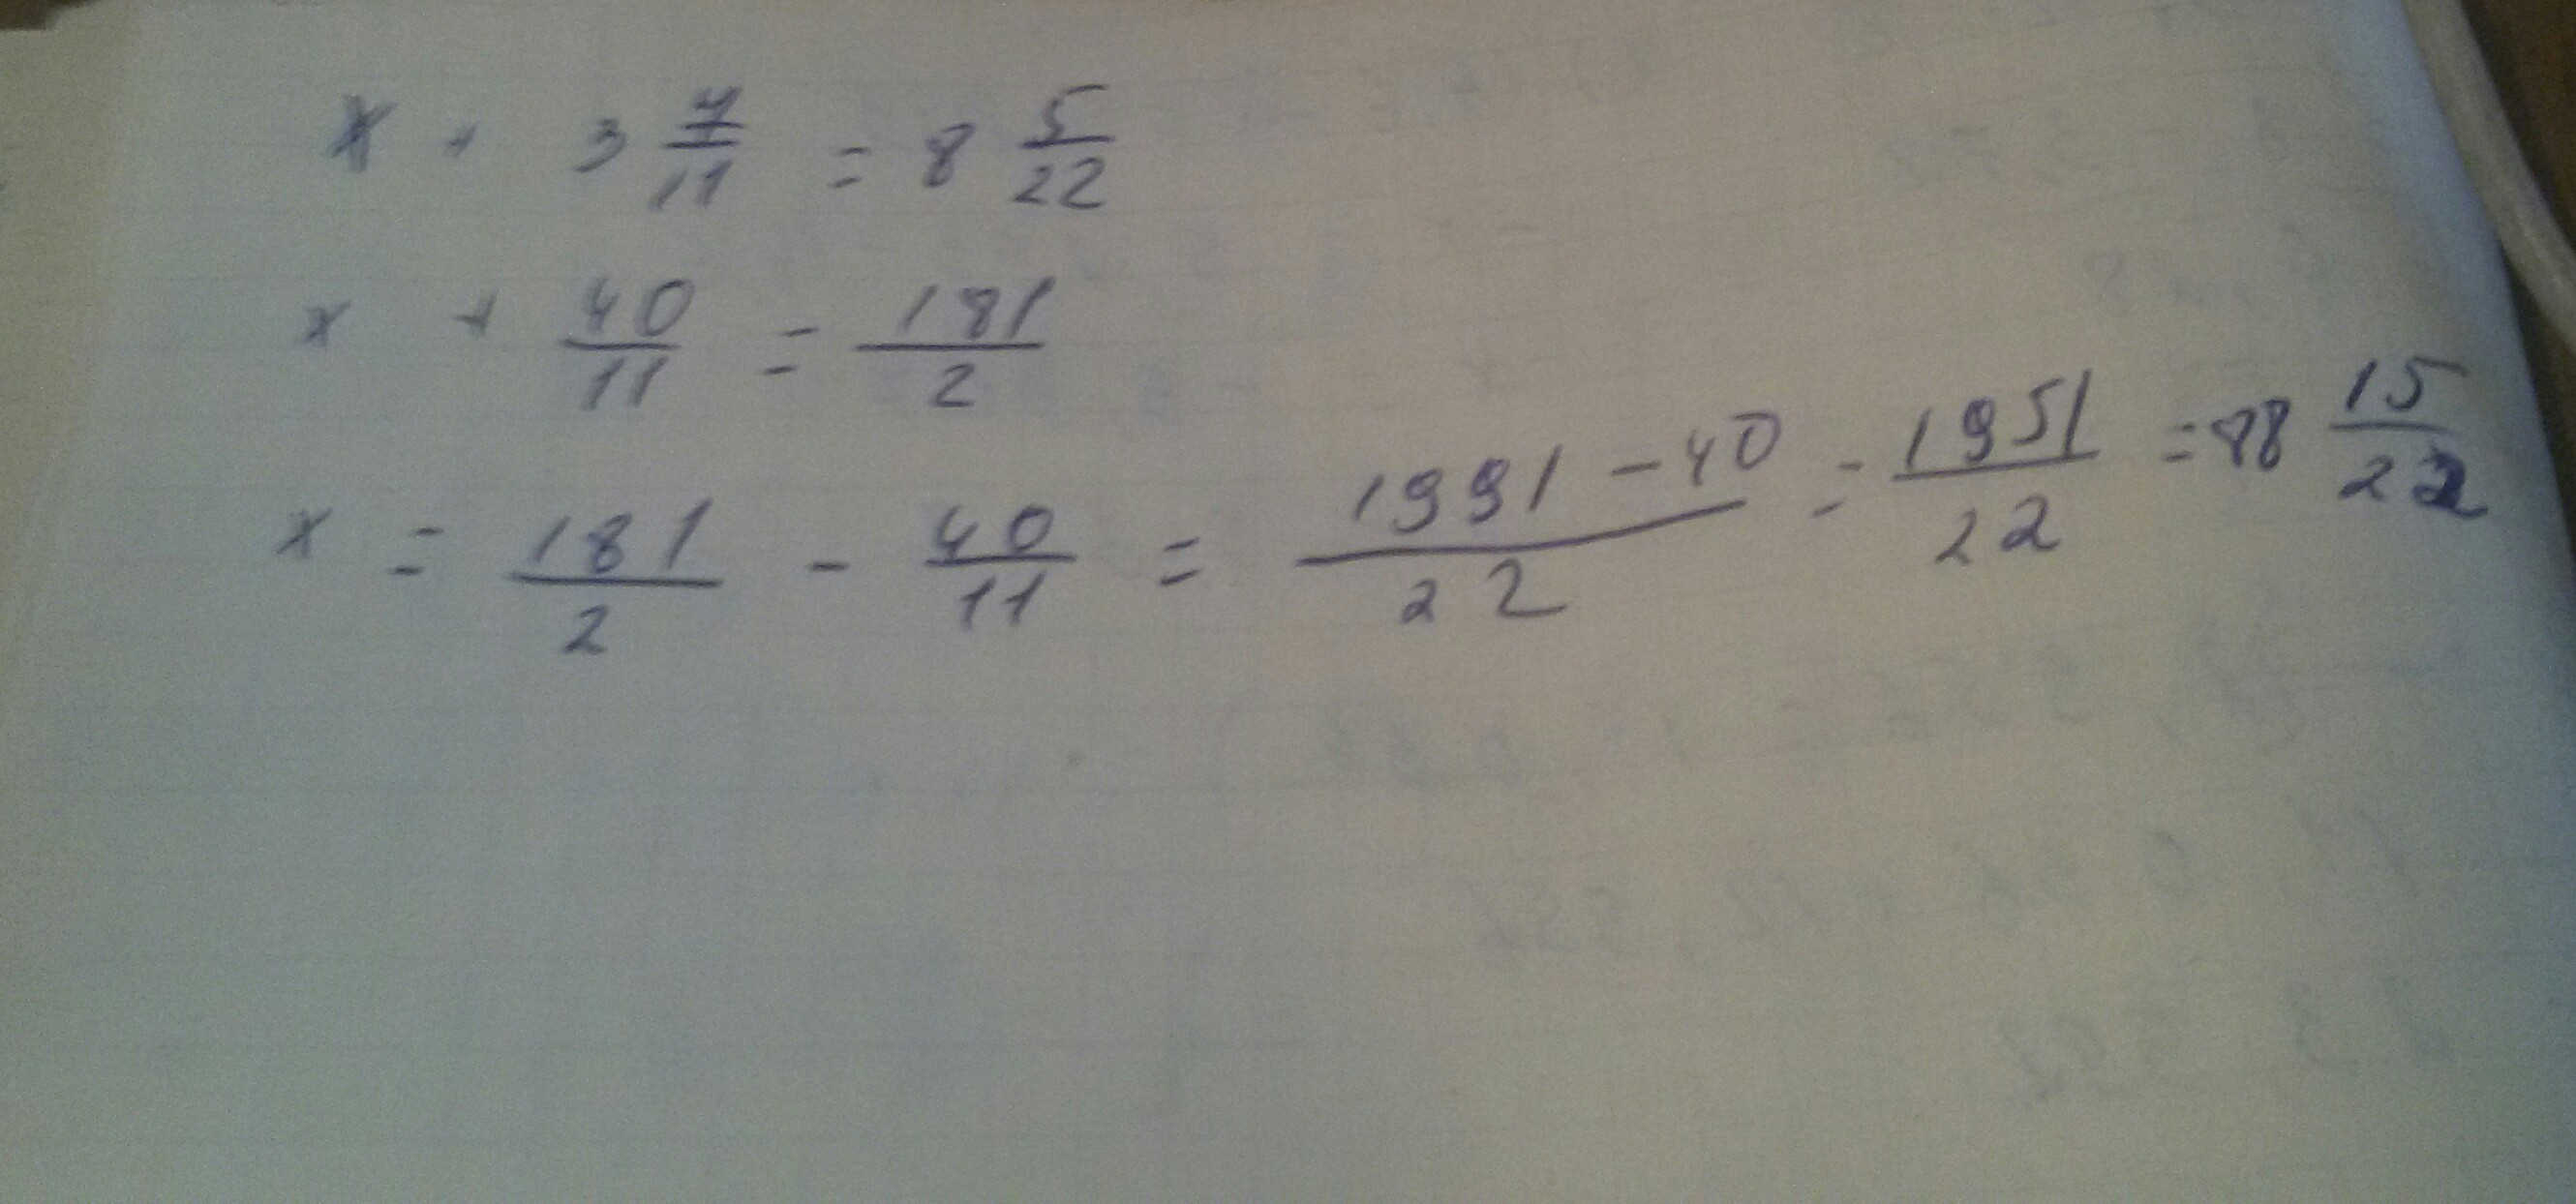 x + 3 7/11 = 8 5/22
x + 40/11 = 181/2
x = 181/2 - 40/11 = 1991 - 40/22 = 1951/22 = 88 15/22